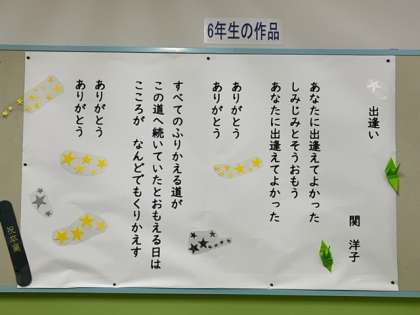 6年生の作品
出逢い
関 洋子
あなたに出逢えてよかった
しみじみとそうおもう
あなたに出逢えてよかった
ありがとう
ありがとう
すべてのふりかえる道が
この道へ続いていたとおもえる日は
こころが なんどでもくりかえす
ありがとう
ありがとう
祝卒業